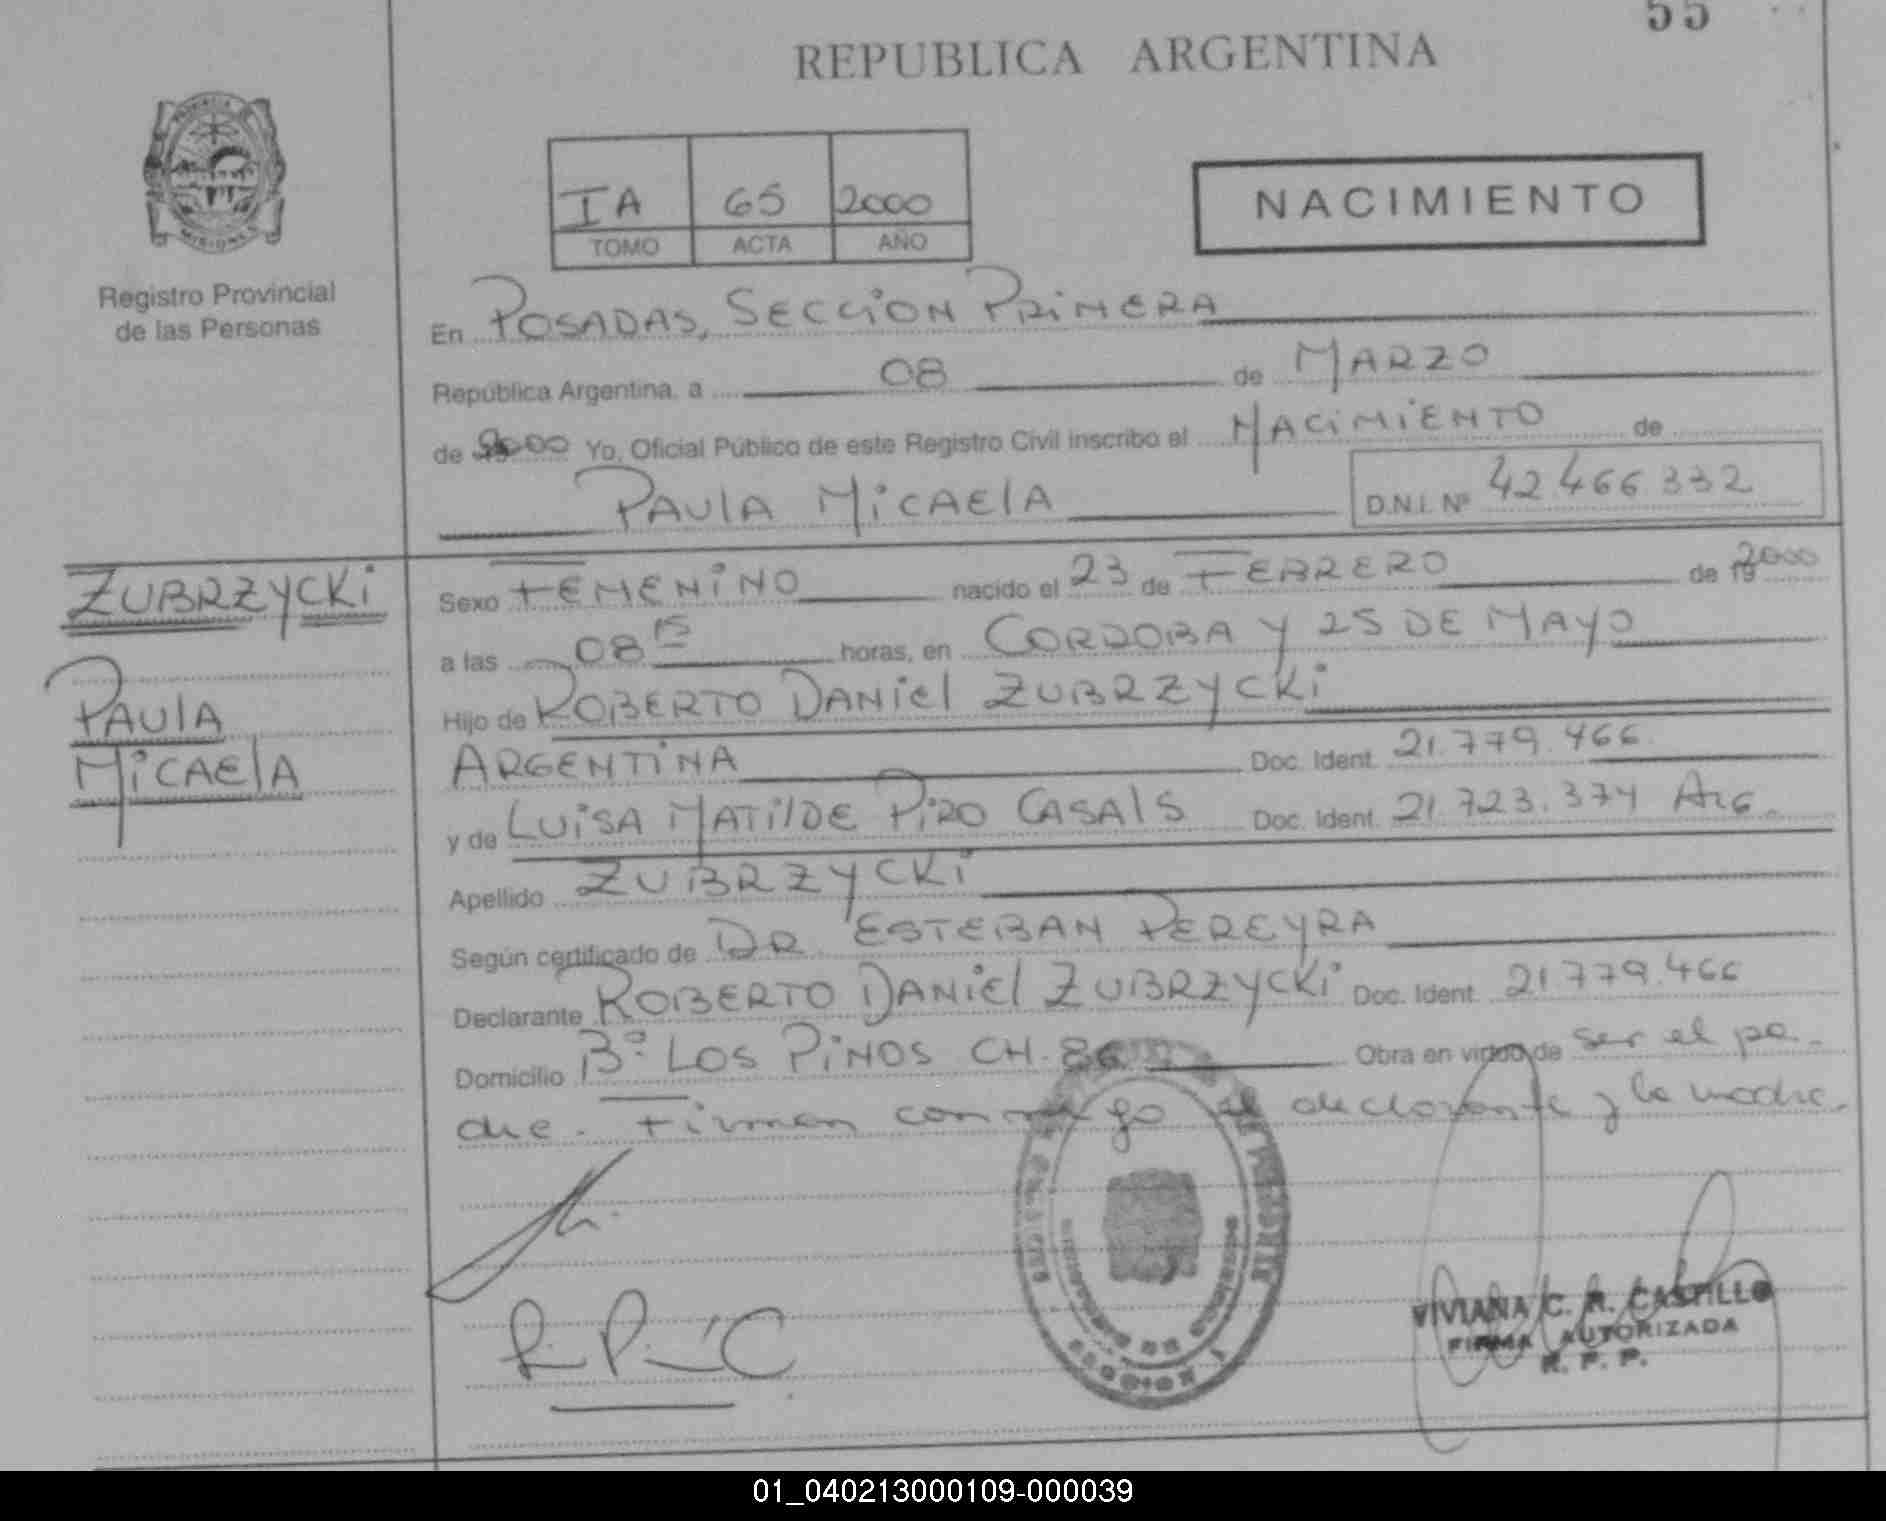 55
REPUBLICA ARGENTINA
PROVINCIA
MISIONES
IA 65 2000
TOMO ACTA AÑO
NACIMIENTO
Registro Provincial
de las Personas
En POSADAS, SECCION PRIMERA
República Argentina, a 08 de MARZO
de 2000 Yo, Oficial Público de este Registro Civil inscribo el NACIMIENTO de
PAULA MICAELA D.N.I. Nº 42.466.332
ZUBRZYCKI
PAULA
MICAELA
Sexo FEMENINO nacido el 23 de FEBRERO de 19 2000
a las 08 15 horas, en CORDOBA Y 25 DE MAYO
Hijo de ROBERTO DANIEL ZUBRZYCKI
ARGENTINA Doc. Ident. 21.779.466
y de LUISA MATILDE PIRO CASALS Doc. Ident. 21.723.374 ARG.
Apellido ZUBRZYCKI
Según certificado de DR. ESTEBAN PEREYRA
Declarante ROBERTO DANIEL ZUBRZYCKI Doc. Ident. 21.779.466
Domicilio Bº LOS PINOS CH. 86 Obra en virtud de ser el pa-
dre. Firman conmigo el declarante y la madre.
VIVIANA C. R. CASTILLO
FIRMA AUTORIZADA
R. P. P.
01_040213000109-000039